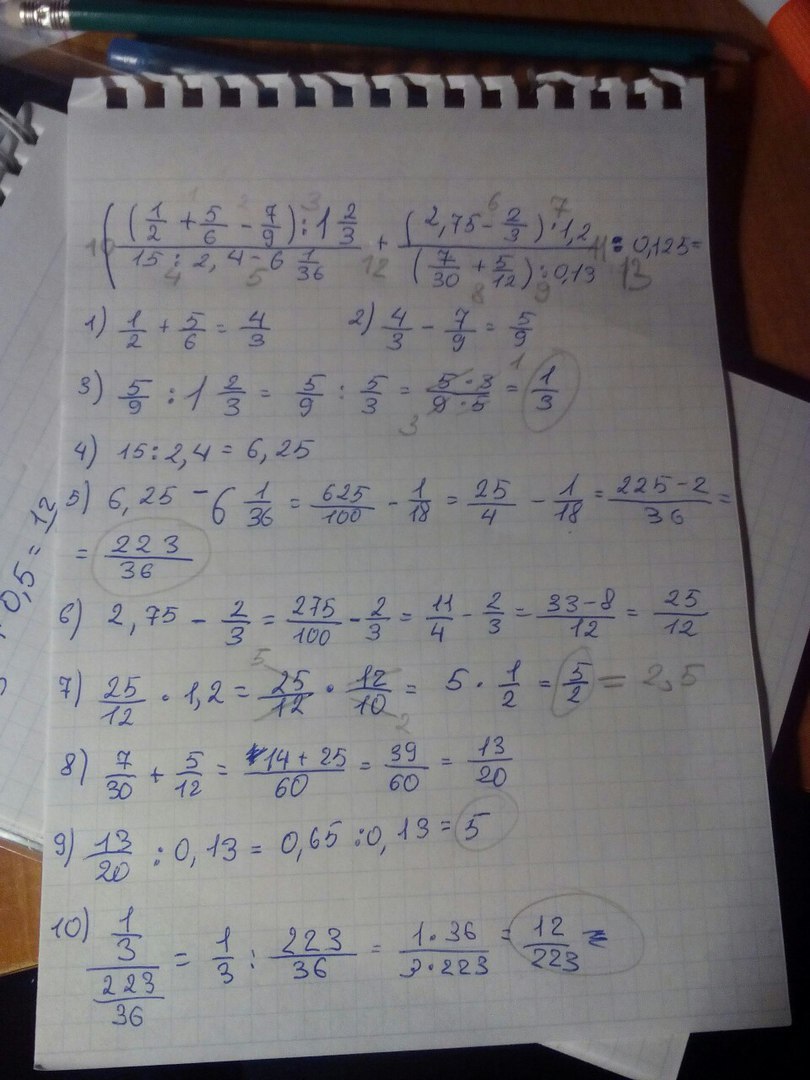 ( ((1/2 + 5/6 - 7/9) : 1 2/3) / (15 : 2,4 - 6 1/36) + ((2,75 - 2/3) · 1,2) / ((7/30 + 5/12) : 0,13) : 0,125 =
1 2 3 6 7
10 4 5 12 8 9 11 13
1) 1/2 + 5/6 = 4/3 2) 4/3 - 7/9 = 5/9
3) 5/9 : 1 2/3 = 5/9 : 5/3 = (5 · 3)/(9 · 5) = 1/3
1
3
4) 15 : 2,4 = 6,25
5) 6,25 - 6 1/36 = 625/100 - 1/18 = 25/4 - 1/18 = (225 - 2)/36 =
= 223/36
6) 2,75 - 2/3 = 275/100 - 2/3 = 11/4 - 2/3 = (33 - 8)/12 = 25/12
7) 25/12 · 1,2 = 25/12 · 12/10 = 5 · 1/2 = 5/2 = 2,5
5
2
8) 7/30 + 5/12 = (14 + 25)/60 = 39/60 = 13/20
9) 13/20 : 0,13 = 0,65 : 0,13 = 5
10) (1/3)/(223/36) = 1/3 : 223/36 = (1 · 36)/(3 · 223) = 12/223
0,5 = 12